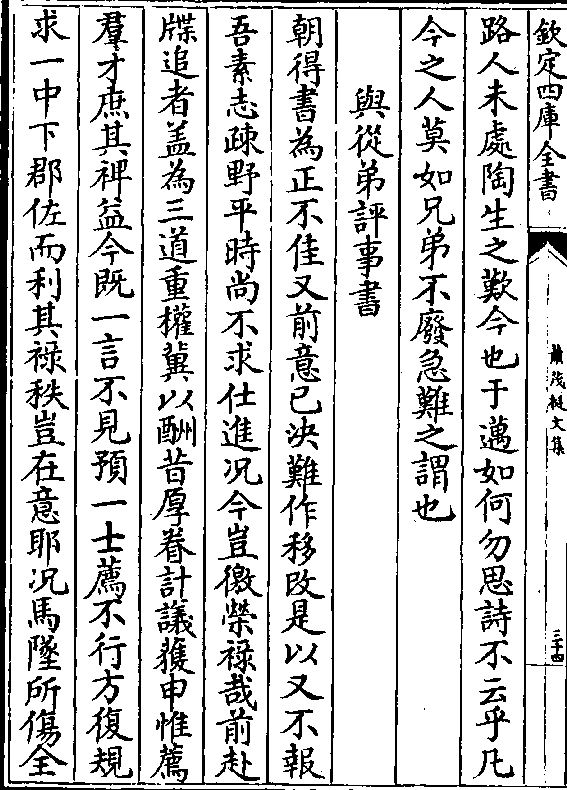 欽定四庫全書
蕭茂挺文集
三十四
路人未處陶生之歎今也于邁如何勿思詩不云乎凡
今之人莫如兄弟不廢急難之謂也
與從弟評事書
朝得書為正不佳又前意已決難作移改是以又不報
吾素志疎野平時尚不求仕進况今豈徼榮祿哉前赴
牒追者盖為三道重權冀以酬昔厚眷計議獲申惟薦
羣才庶其裨益今既一言不見預一士薦不行方復規
求一中下郡佐而利其祿秩豈在意耶况馬墜所傷全